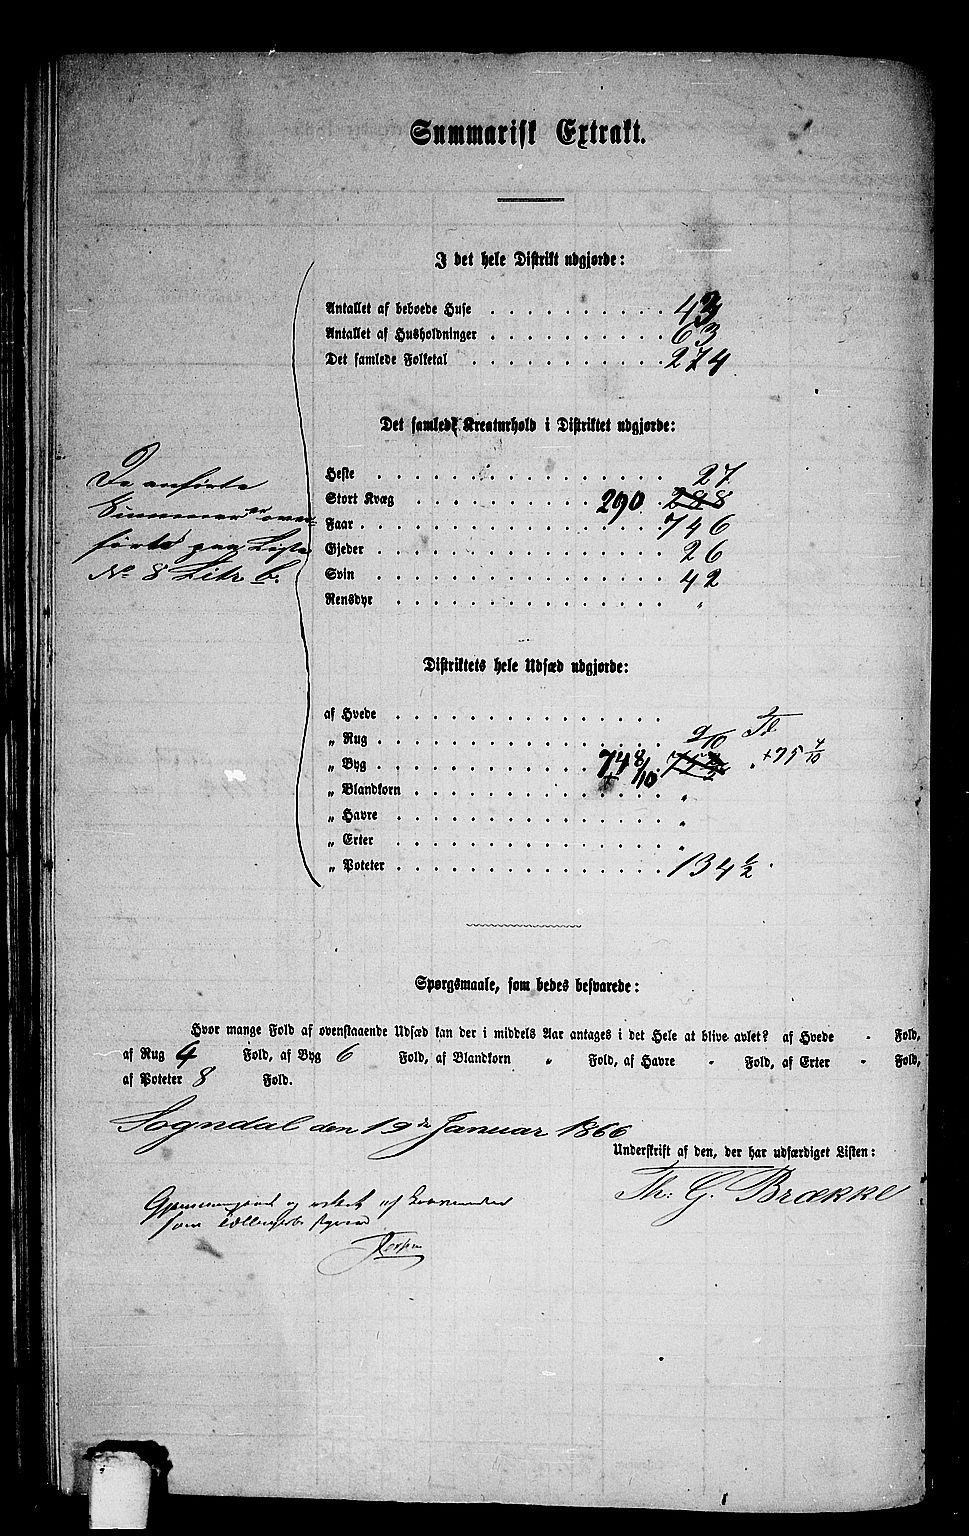 Summarisk Extrakt.
I det hele Distrikt udgjorde:
Antallet af beboede Huse 43
Antallet af Husholdninger 63
Det samlede Folketal 274
Det samlede Kreaturhold i Distriktet udgjorde:
Heste 27
Stort Kvæg 290 288
Faar 746
Gjeder 26
Svin 42
Rensdyr "
De anførte
Summer er over-
førte paa Liste
No 8 Litr b.
Distriktets hele Udsæd udgjorde:
af Hvede
„ Rug 9/10 Td
„ Byg 74 8/10 +75 4/10
„ Blandkorn "
„ Havre "
„ Erter "
„ Poteter 134 1/2
Spørgsmaale, som bedes besvarede:
Hvor mange Fold af ovenstaaende Udsæd kan der i middels Aar antages i det Hele at blive avlet? af Hvede - Fold,
af Rug 4 Fold, af Byg 6 Fold, af Blandkorn " Fold, af Havre " Fold, af Erter - Fold,
af Poteter 8 Fold.
Sogndal den 19de Januar 1866
Underskrift af den, der har udfærdiget Listen:
Th: G. Brække
Gjennemgaaet og rettet af
som